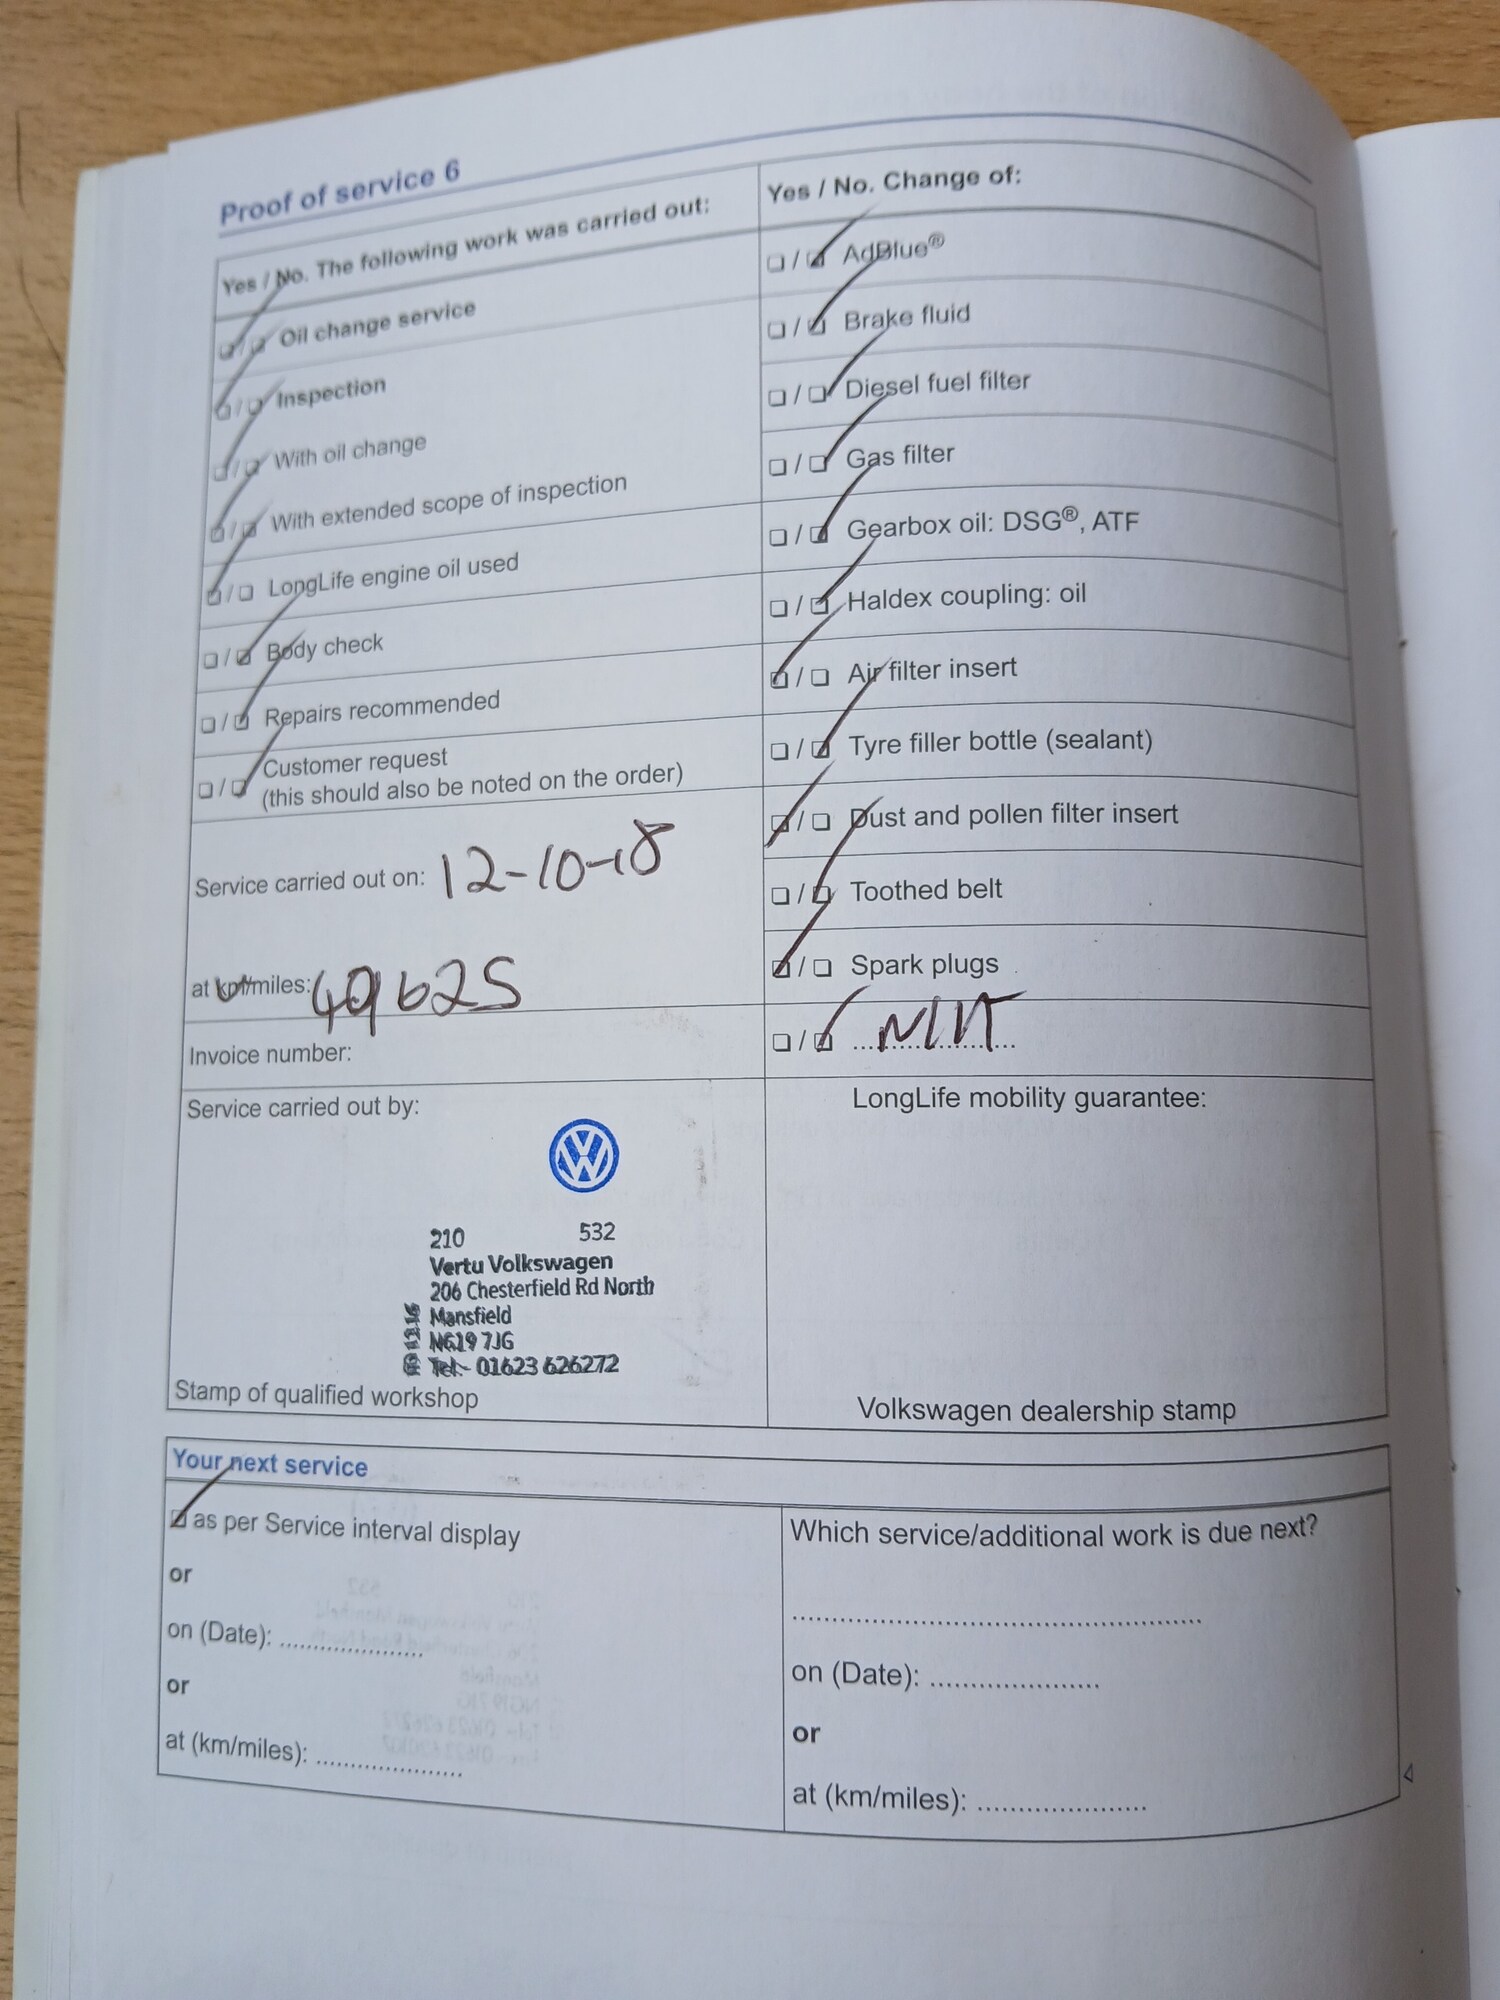 Proof of service 6
Yes / No. The following work was carried out:
Oil change service
Inspection
With oil change
With extended scope of inspection
LongLife engine oil used
Body check
Repairs recommended
Customer request
(this should also be noted on the order)
Service carried out on: 12-10-18
at km/miles: 49625
Invoice number:
Yes / No. Change of:
AdBlue®
Brake fluid
Diesel fuel filter
Gas filter
Gearbox oil: DSG®, ATF
Haldex coupling: oil
Air filter insert
Tyre filler bottle (sealant)
Dust and pollen filter insert
Toothed belt
Spark plugs
Service carried out by:
210 532
Vertu Volkswagen
206 Chesterfield Rd North
Mansfield
NG19 7JG
Tel:- 01623 626272
Stamp of qualified workshop
LongLife mobility guarantee:
Volkswagen dealership stamp
Your next service
as per Service interval display
or
on (Date): ......................
or
at (km/miles): ......................
Which service/additional work is due next?
on (Date): ......................
or
at (km/miles): ......................